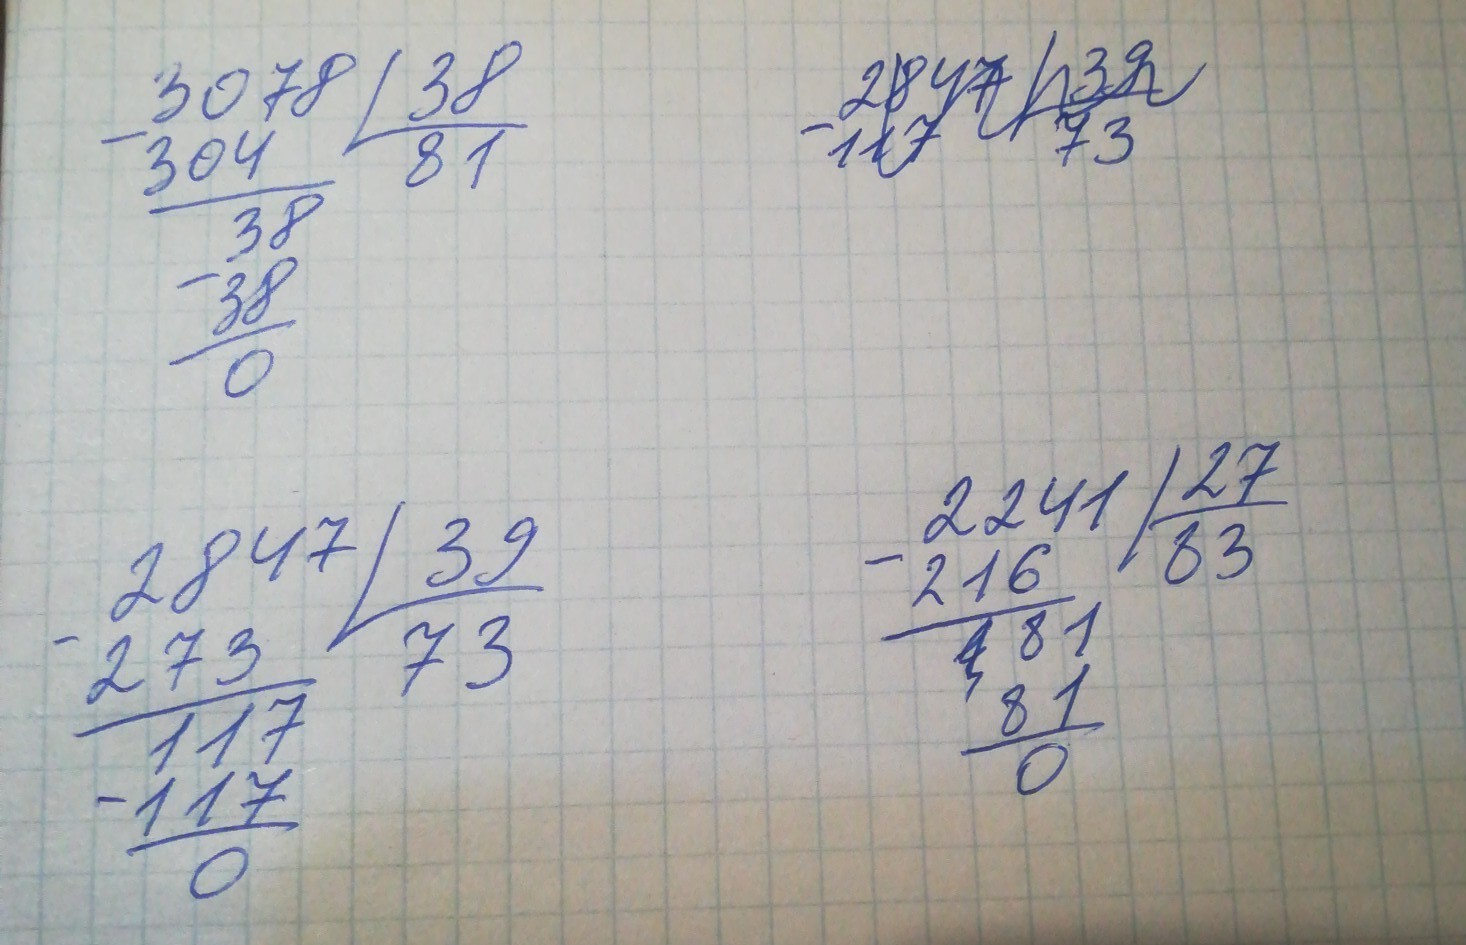 3078 38
- 304 81
38
- 38
0
2847 39
- 117 73
2847 39
- 273 73
117
- 117
0
2241 27
- 216 83
81
81
0